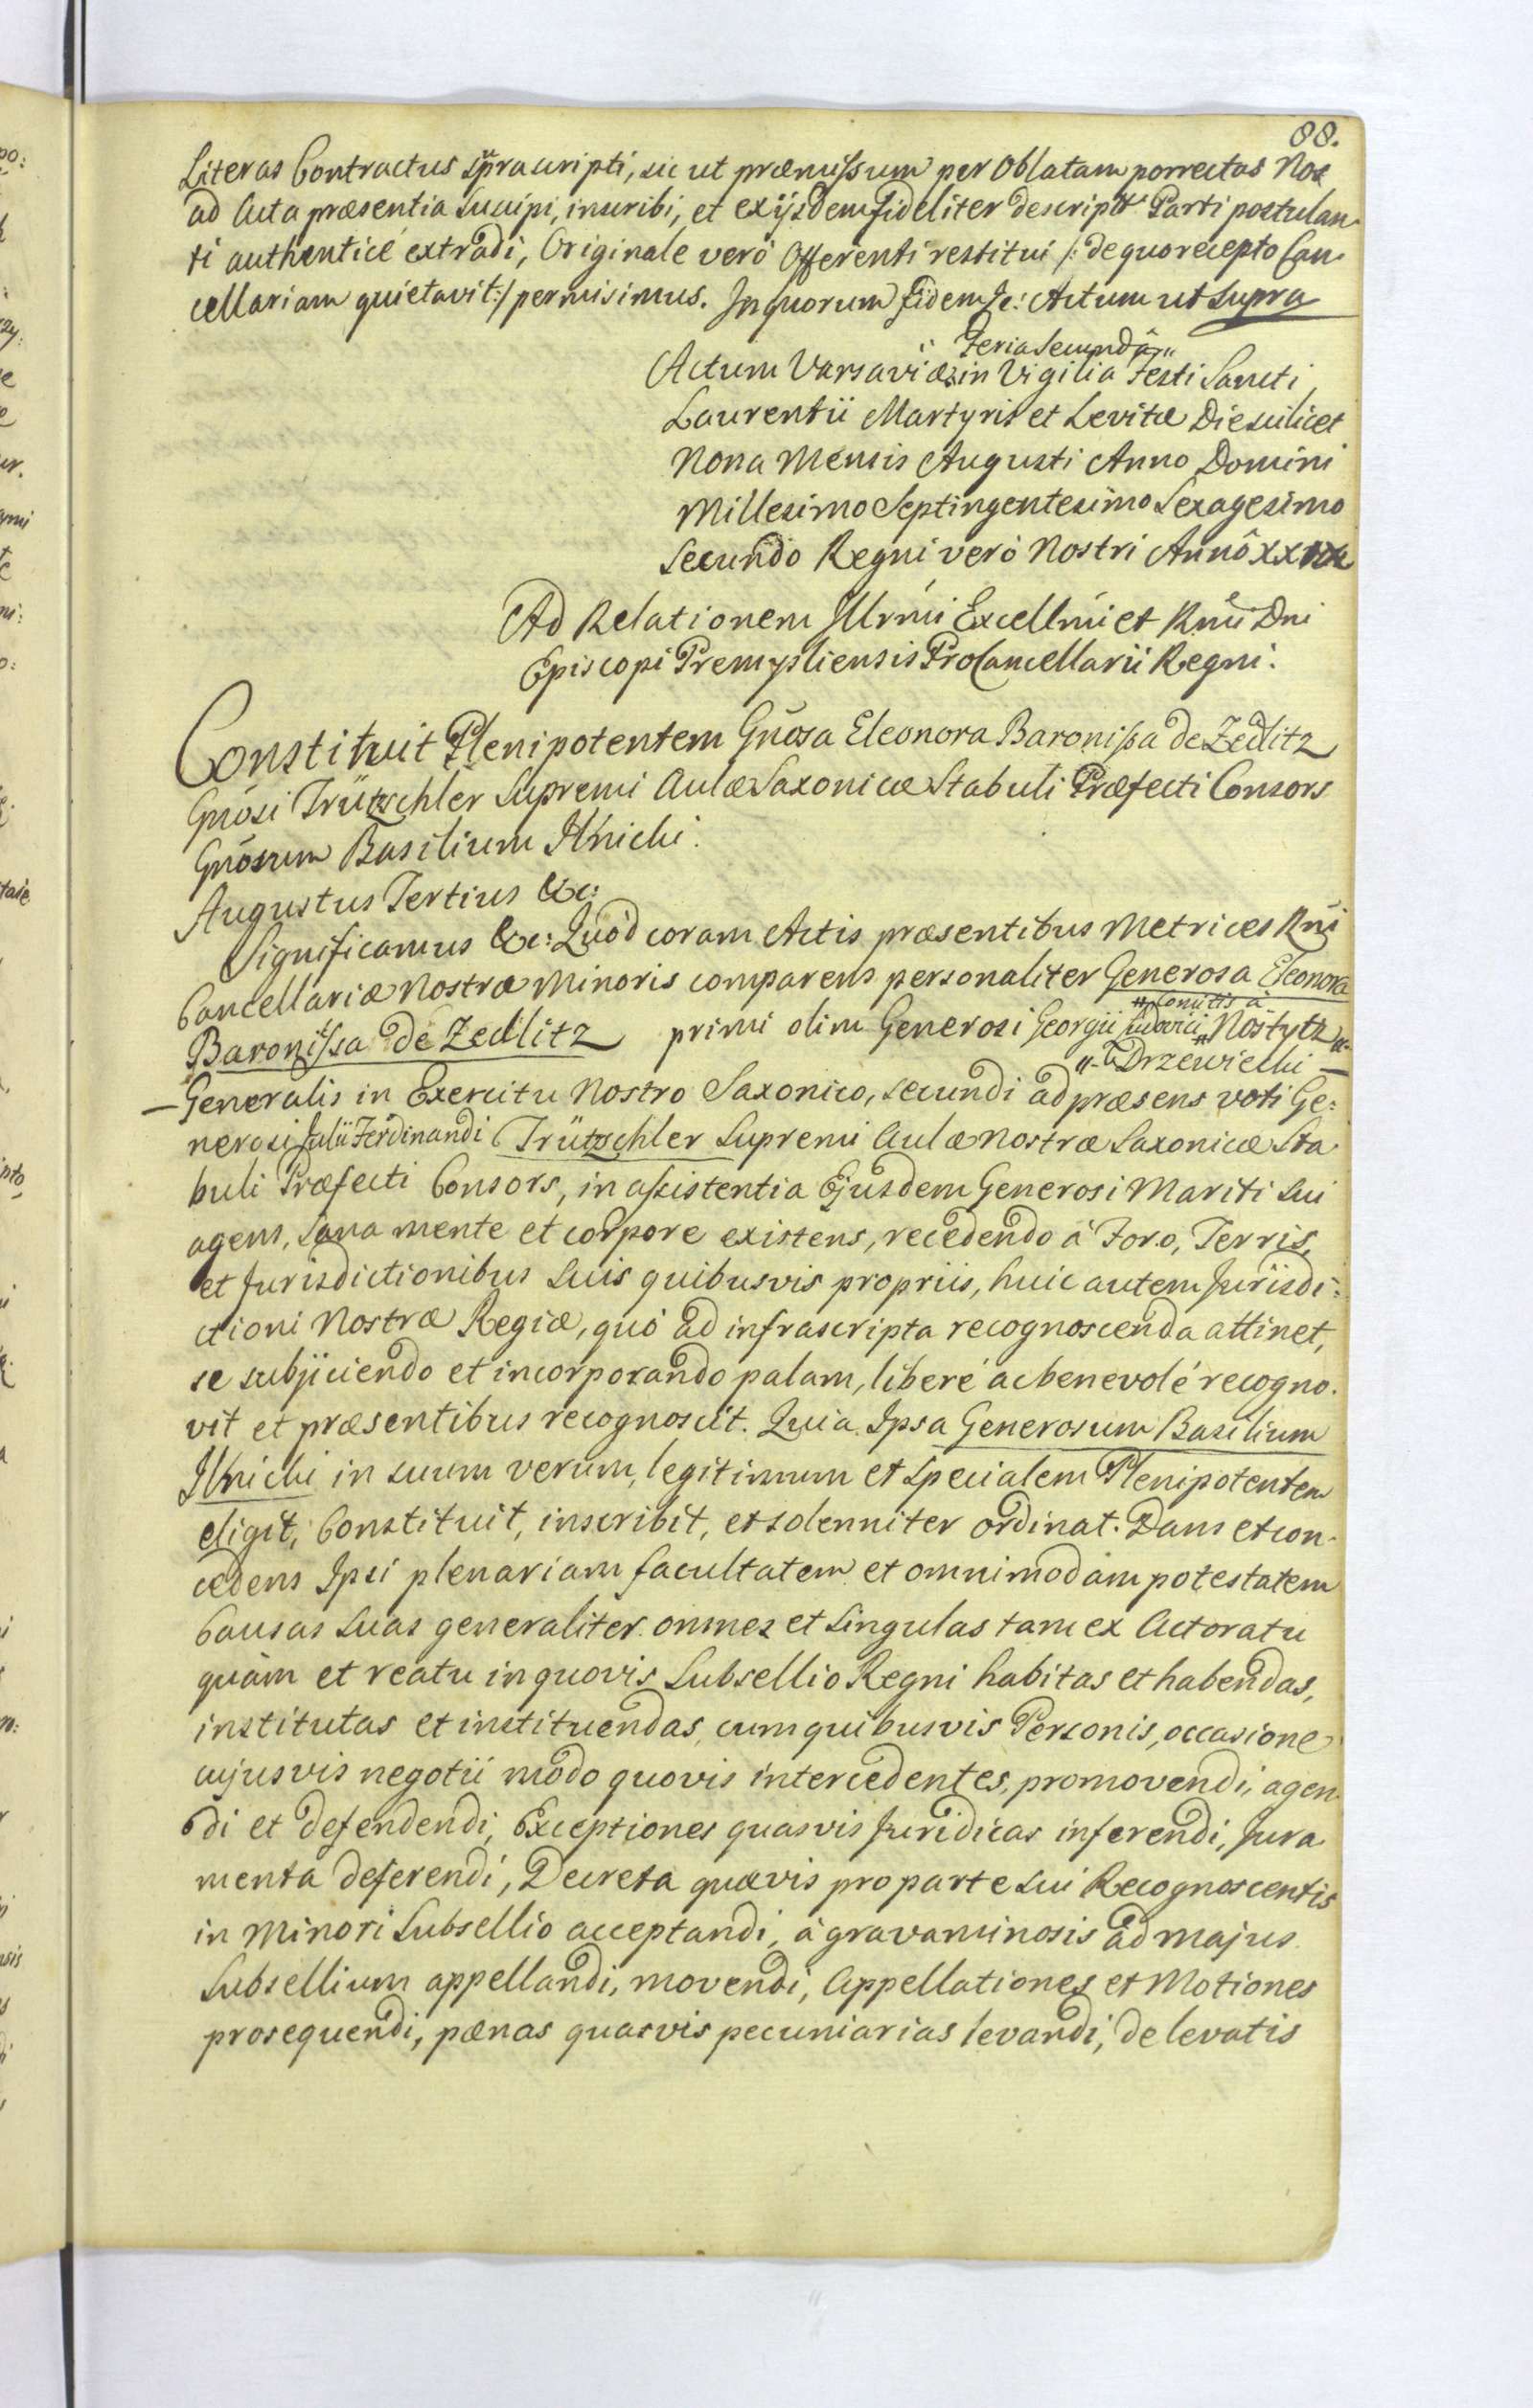 88.
Literas Contractus supra scripti, sic ut præmissum per Oblatam porrectas Nos
ad Acta præsentia Suscipi, inscribi, et exijsdem fideliter descript: Parti postulan
ti authenticè extradi, Originale verò Offerenti restitui /: de quo recepto Can
cellariam quietavit :/ permisimus. In quorum fidem &c: Actum ut supra
Feria Secundâ
Actum Varsaviæ in Vigilia Festi Sancti
Laurentii Martyris et Levitæ Die scilicet
Nona Mensis Augusti Anno Domini
Millesimo Septingentesimo Sexagesimo
Secundo Regni verò Nostri Annô
Ad Relationem Illrmi Excellmi et Rndi Dni
Episcopi Premysliensis ProCancellarii Regni.
Constituit Plenipotentem Gnosa Eleonora Baronissa de Zedlitz
Gnosi Trützschler Supremi Aulæ Saxonicæ Stabuli Præfecti Consors
Gnosum Basilium Ilnicki.
Augustus Tertius &c:
Significamus &c: Quod coram Actis præsentibus Metrices Rni
Cancellariæ Nostræ Minoris comparens personaliter Generosa Eleonora
" Comitis à
Baronissa de Zedlitz primi olim Generosi Georgii Ludovici " Nostytz "
"-Drzewiecki —
—Generalis in Exercitu Nostro Saxonico, secundi ad præsens voti Ge:
nerosi Julii Ferdinandi Trützschler Supremi Aulæ Nostræ Saxonicæ Sta
buli Præfecti Consors, in assistentia Ejusdem Generosi Mariti Sui
agens, Sana mente et corpore existens, recedendo à Foro, Terris,
et Jurisdictionibus Suis quibusvis propriis, huic autem Jurisdi:
ctioni Nostræ Regiæ, quò ad infrascripta recognoscenda attinet,
se subjiciendo et incorporando palam, liberè ac benevolè recogno.
vit et præsentibus recognoscit. Quia Ipsa Generosum Basilium
Ilnicki in suum verum, legitimum et Specialem Plenipotentem
eligit, Constituit, inscribit, et solenniter ordinat. Dans et con-
cedens Ipsi plenariam facultatem et omnimodam potestatem
Causas Suas generaliter omnes et Singulas tam ex Actoratu
quàm et reatu in quovis Subsellio Regni habitas et habendas,
institutas et instituendas, cum quibusvis Personis, occasione
cujusvis negotii modo quovis intercedentes, promovendi, agen
di et defendendi, Exceptiones quasvis Juridicas inferendi, Jura
menta deferendi, Decreta quævis pro parte Sui Recognoscentis
in Minori Subsellio acceptandi, à gravaminosis ad majus
Subsellium appellandi, movendi, Appellationes et Motiones
prosequendi, pænas quasvis pecuniarias levandi, de levatis